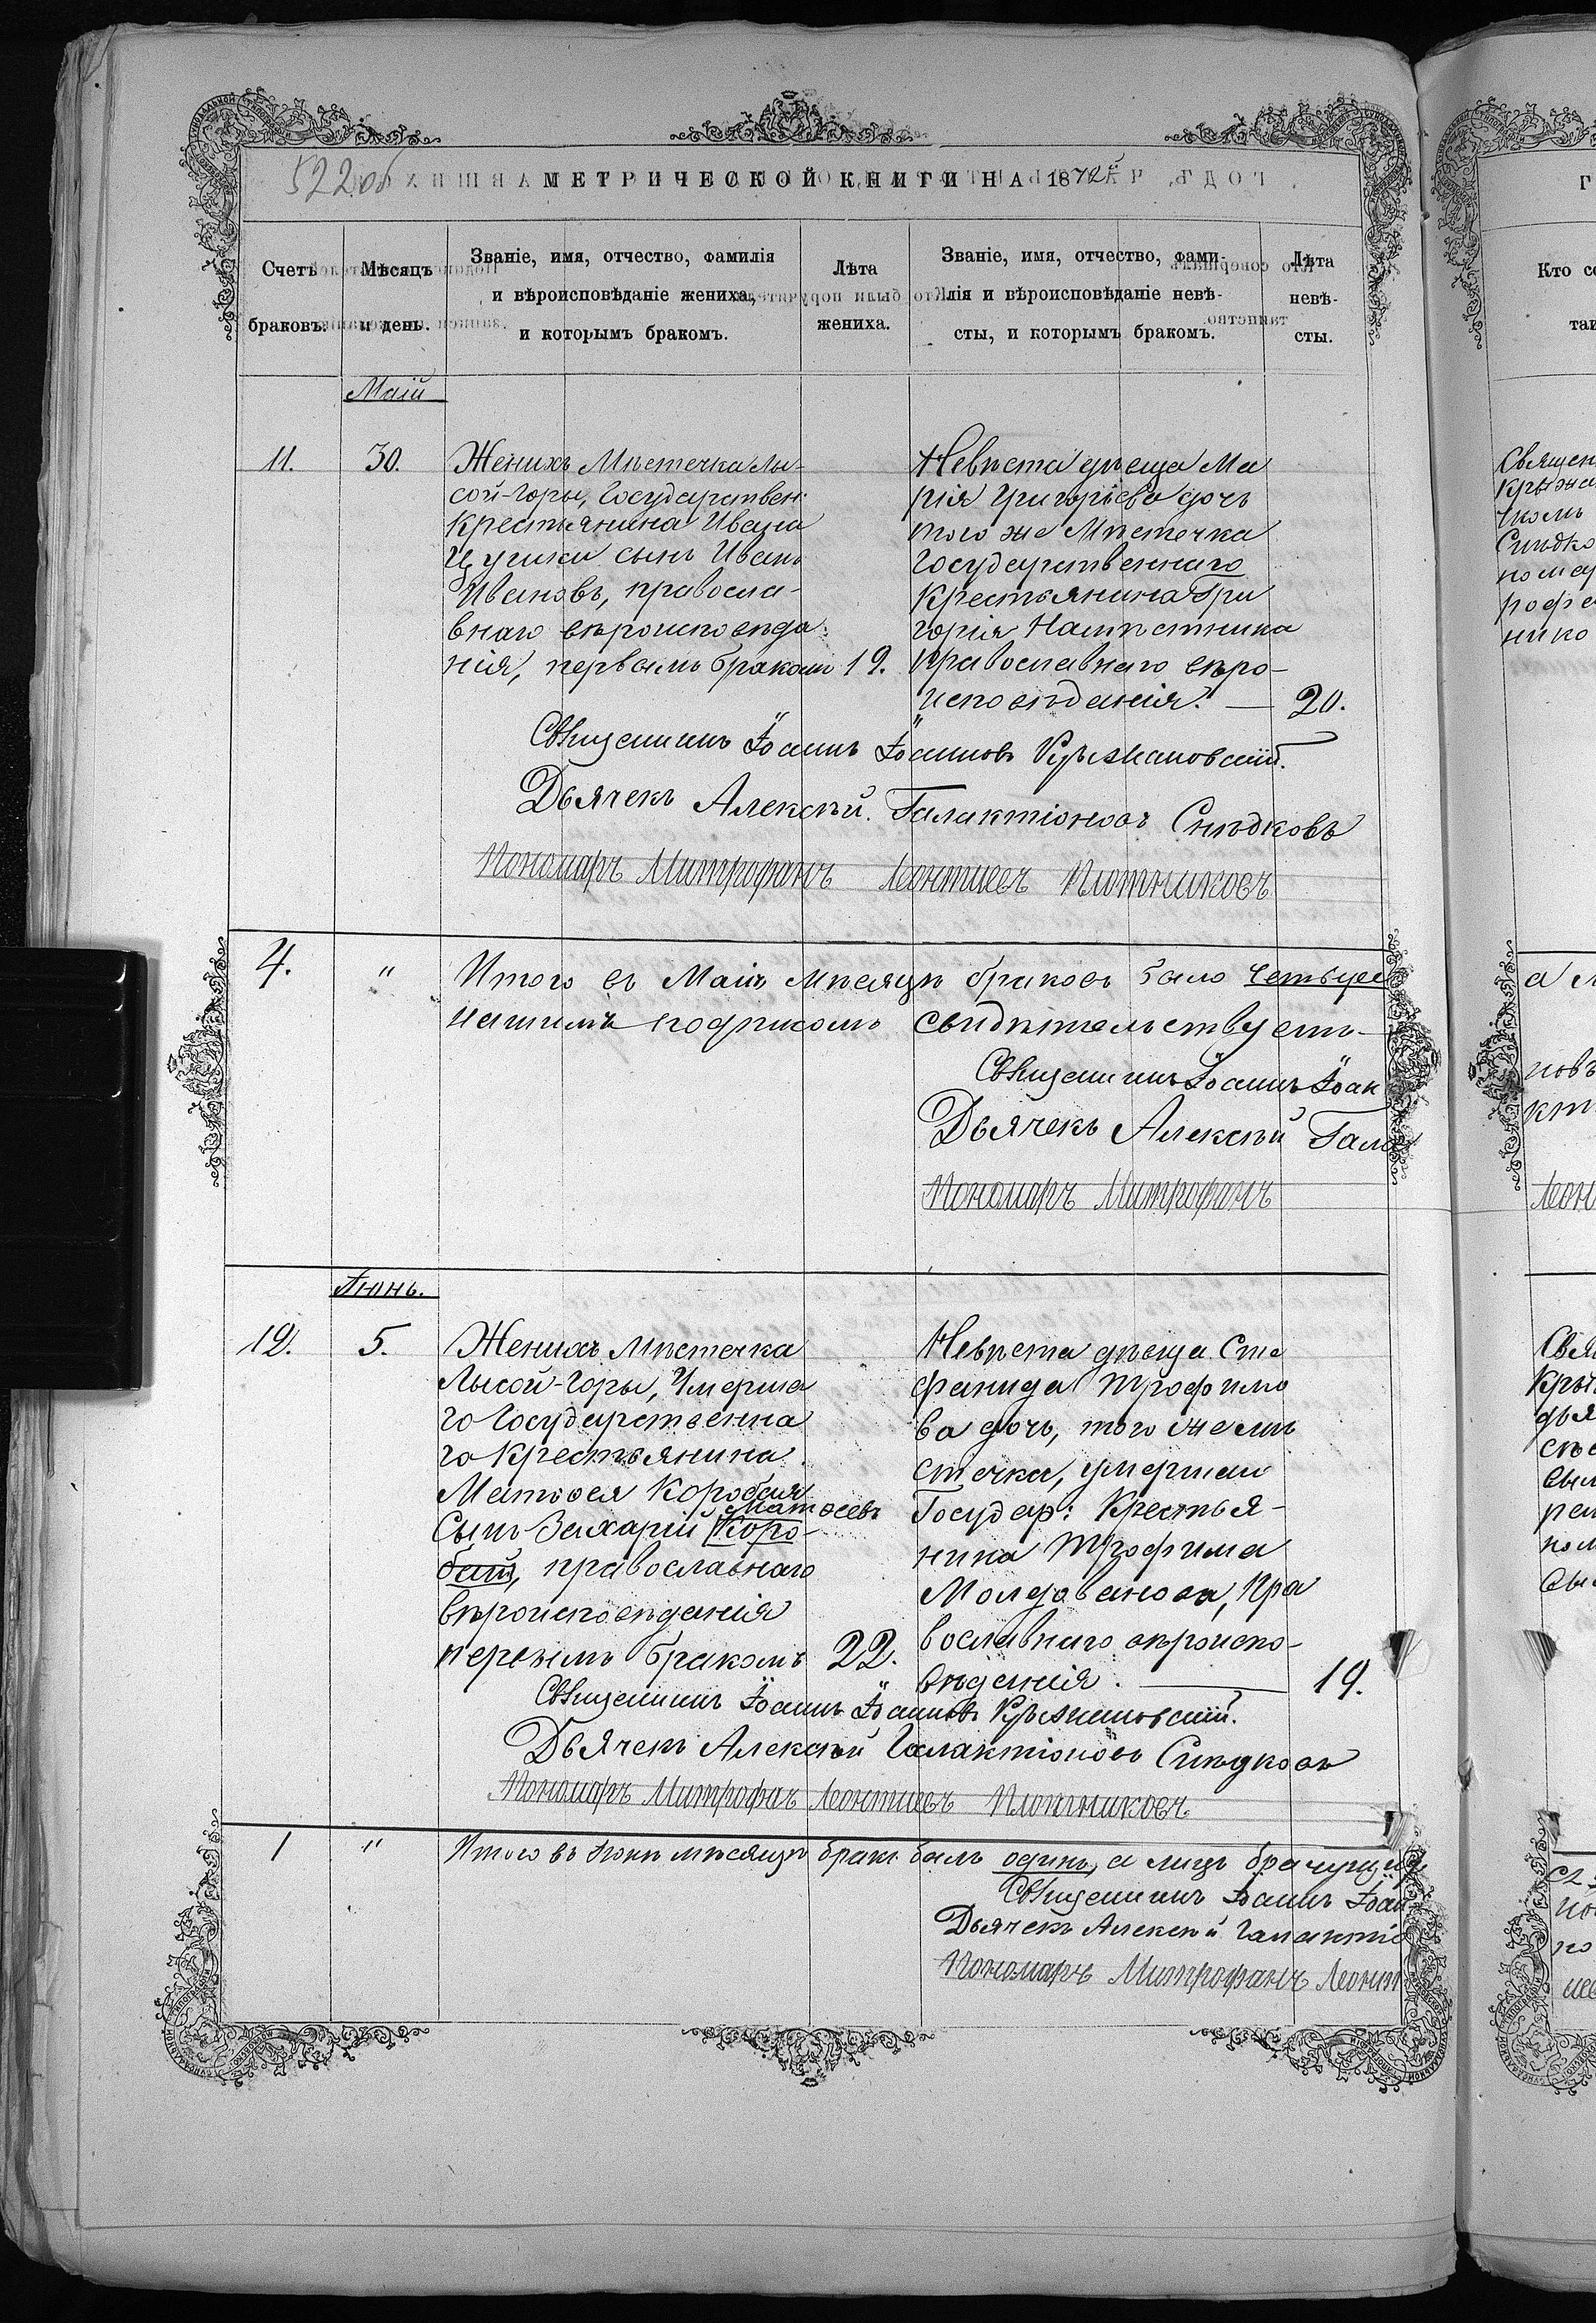 522 об
МЕТРИЧЕСКОЙ КНИГИ НА 1872й
Счетъ браковъ.
Мѣсяцъ и день.
Званіе, имя, отчество, фамилія
и вѣроисповѣданіе жениха,
и которымъ бракомъ.
Лѣта
жениха.
Званіе, имя, отчество, фами-
лія и вѣроисповѣданіе невѣ-
сты, и которымъ бракомъ.
Лѣта
невѣ-
сты.
Маій
11.
30.
Женихъ Мѣстечка Лы-
сой-Горы, Государствен:
Крестьянина Ивана
сынъ Иванъ
Ивановъ, правосла-
внаго вѣроисповѣда
нія, первымъ бракомъ
19.
Невѣста дѣвица Ма
рія Григорьева дочь
того же Мѣстечка
Государственнаго
Крестьянина Гри
горія Намѣстника
Православнаго вѣро-
исповѣданія. —
20.
Священникъ Іоаннъ Іоанновъ Крыжановскій.
Дьячекъ Алексѣй Галактіоновъ Снѣдковъ
Пономарь Митрофанъ Леонтиевъ Плотниковъ
4.
"
Итого въ Маіѣ Мѣсяцѣ браковъ было четыре
нашимъ подписомъ свидѣтельствуемъ
Священникъ Іоаннъ Іоан
Дьячекъ Алексѣй Гала
Пономарь Митрофанъ
Іюнь.
12.
5.
Женихъ Мѣстечка
Лысой-Горы, Умерша
го Государственна
го Крестьянина
Матѳея Коробая
Матѳеевъ
Сынъ Захарій Коро-
бай, православнаго
вѣроисповѣданія
первымъ бракомъ
22.
Невѣста дѣвица Сте
фанида Трофимо
ва дочь, того же Мѣ
стечка, умершаго
Государ: Крестья-
нина Трофима
Молдованова, Пра
вославнаго вѣроиспо-
вѣданія. —
19.
Священникъ Іоаннъ Іоанновъ Крыжановскій.
Дьячекъ Алексѣй Галактіоновъ Снѣдковъ
Пономарь Митрофанъ Леонтиевъ Плотниковъ
1
"
Итого въ Іюнѣ мѣсяцѣ бракъ былъ одинъ, а лицъ
Священникъ Іоаннъ Іоан
Дьячекъ Алексѣй Галактіо
Пономарь Митрофанъ Леонт